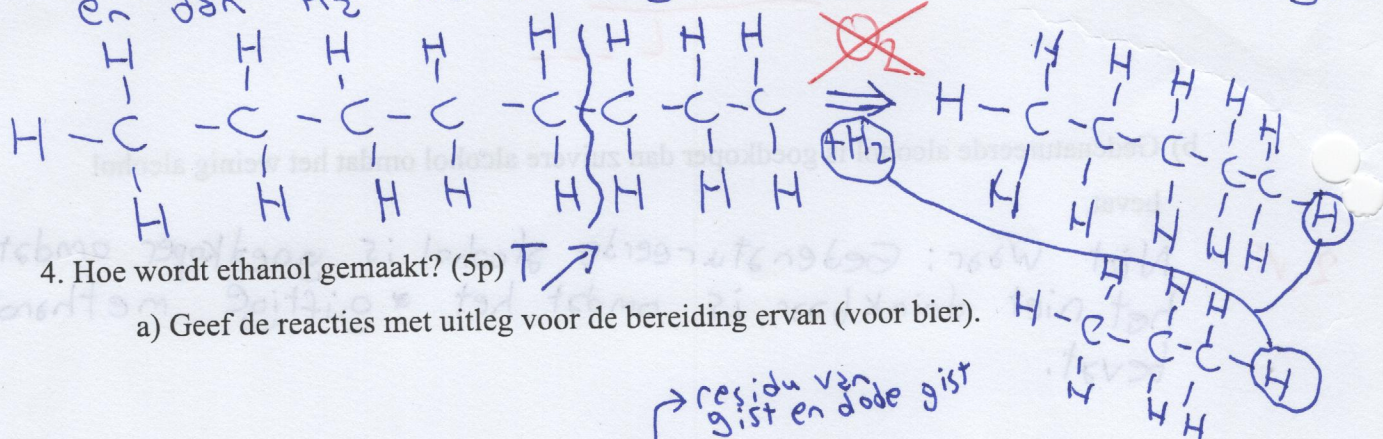 en dan H2
H H H H H H H H
H - C - C - C - C - C - C - C - C
H H H H H H H H
O2
+H2
H H H H H
H - C - C - C - C - C - H
H H H H H
T
4. Hoe wordt ethanol gemaakt? (5p)
a) Geef de reacties met uitleg voor de bereiding ervan (voor bier).
H H H
H - C - C - C - H
H H H
residu van
gist en dode gist